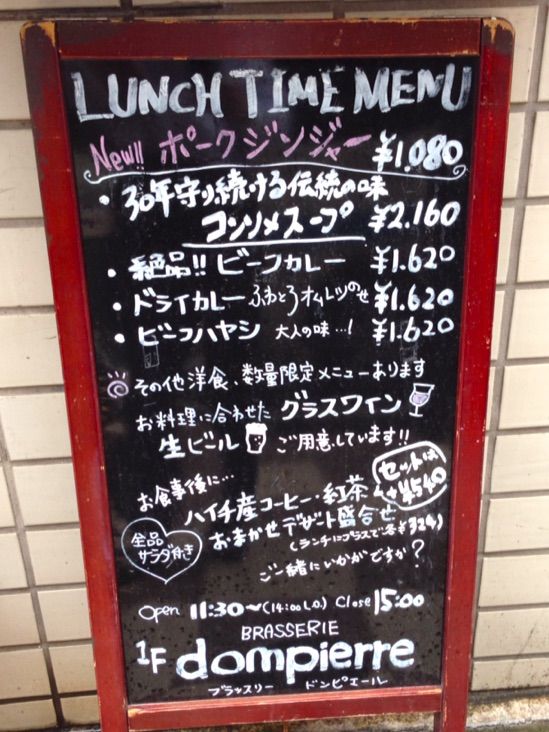 LUNCH TIME MENU
New!! ポークジンジャー ¥1.080
・30年守り続ける伝統の味
コンソメスープ ¥2.160
・絶品!! ビーフカレー ¥1.620
・ドライカレー ふわとろオムレツのせ ¥1.620
・ビーフハヤシ 大人の味…! ¥1.620
その他洋食、数量限定メニューあります
お料理に合わせた グラスワイン
生ビール ご用意しています!!
お食事後に…
セットは
+¥540
ハイチ産コーヒー・紅茶
おまかせデザート盛合せ
(ランチにプラスで各¥324)
全品
サラダ付き
ご一緒にいかがですか?
Open 11:30〜(14:00 L.O.) Close 15:00
BRASSERIE
1F dompierre
ブラッスリー ドンピエール